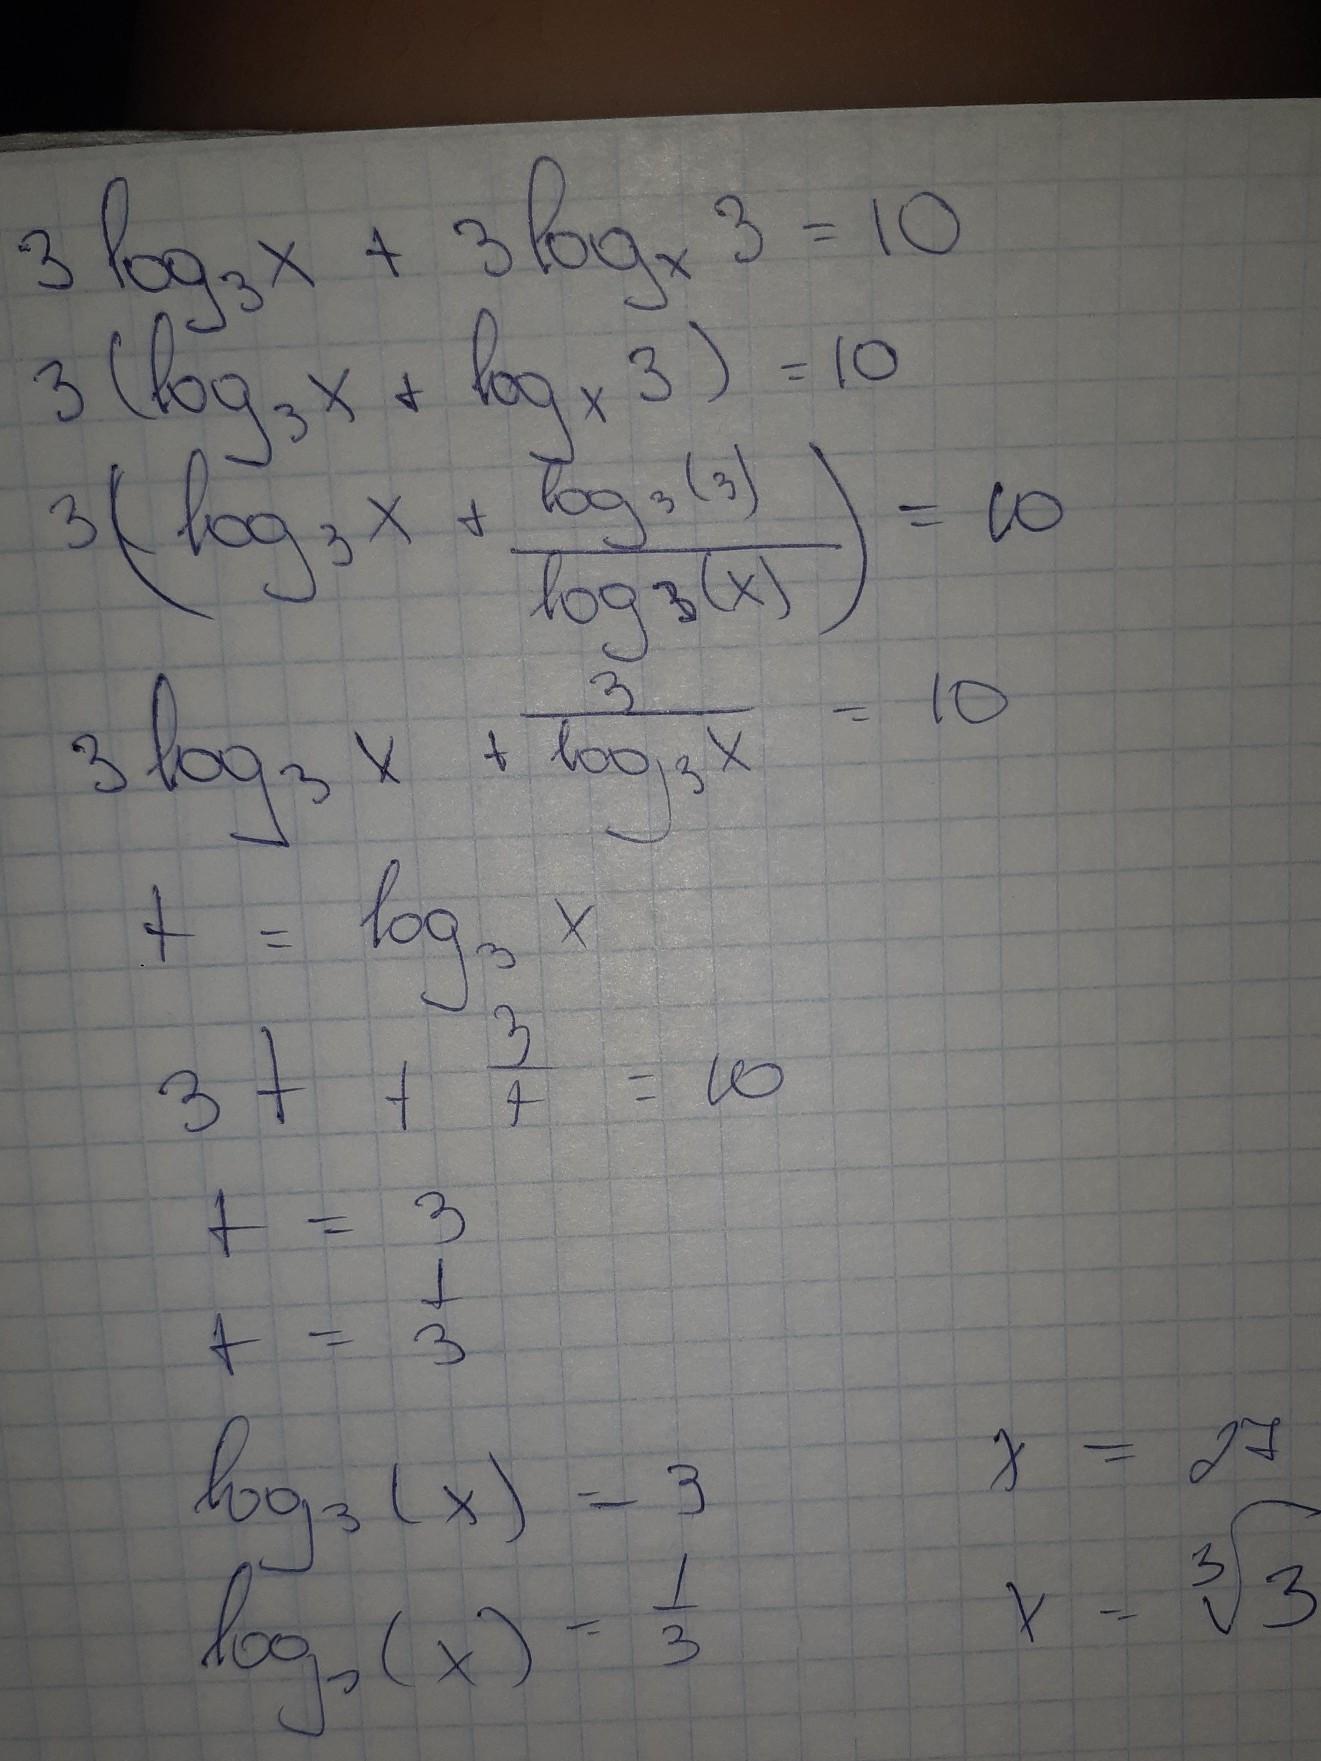 3 log₃x + 3 logₓ 3 = 10
3 (log₃x + logₓ 3) = 10
3 (log₃x + log₃(3) / log₃(x)) = 10
3 log₃ x + 3 / log₃x = 10
t = log₃ x
3t + 3/t = 10
t = 3
t = 1/3
log₃(x) = 3 x = 27
log₃(x) = 1/3 x = ³√3